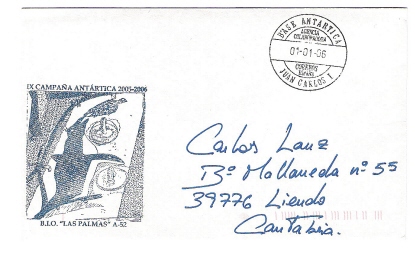 BASE ANTÁRTICA
AGENCIA
COLABORADORA
01-01-06
CORREOS
ESPAÑA
JUAN CARLOS I
IX CAMPAÑA ANTÁRTICA 2005-2006
B.I.O. "LAS PALMAS" A-52
Carlos Lanz
Bº Mollaneda nº 55
39776 Liendo
Cantabria.